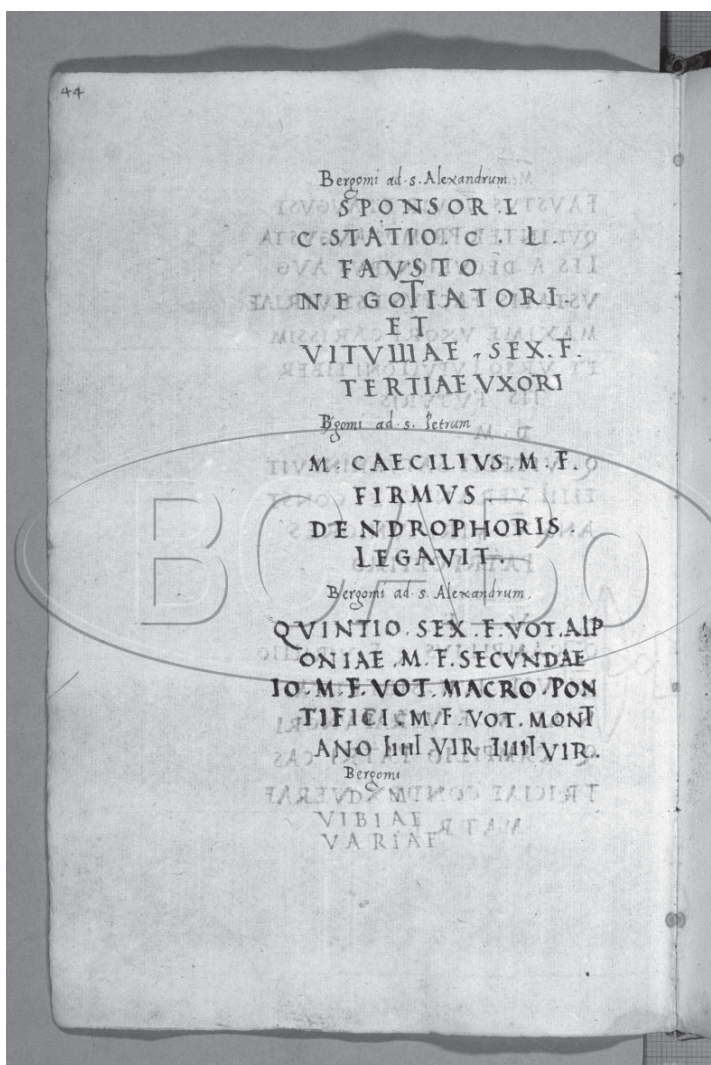 44
Bergomi ad . s . Alexandrum
SPONSOR . L
C . STATIO . C . L .
FAVSTO
NEGOTIATORI .
ET
VITVIIIAE . SEX . F .
TERTIAE VXORI
B'gomi ad . s . Petrum
M . CAECILIVS . M . F .
FIRMVS .
DENDROPHORIS .
LEGAVIT .
Bergomi ad . s . Alexandrum .
QVINTIO . SEX . F . VOT . AIP
ONIAE . M . F . SECVNDAE
IO . M . F . VOT . MACRO . PON
TIFICI . C M . F . VOT . MONT
ANO IIIII VIR IIIIII VIR .
Bergomi
VIBIAE
VARIAE
BCABo